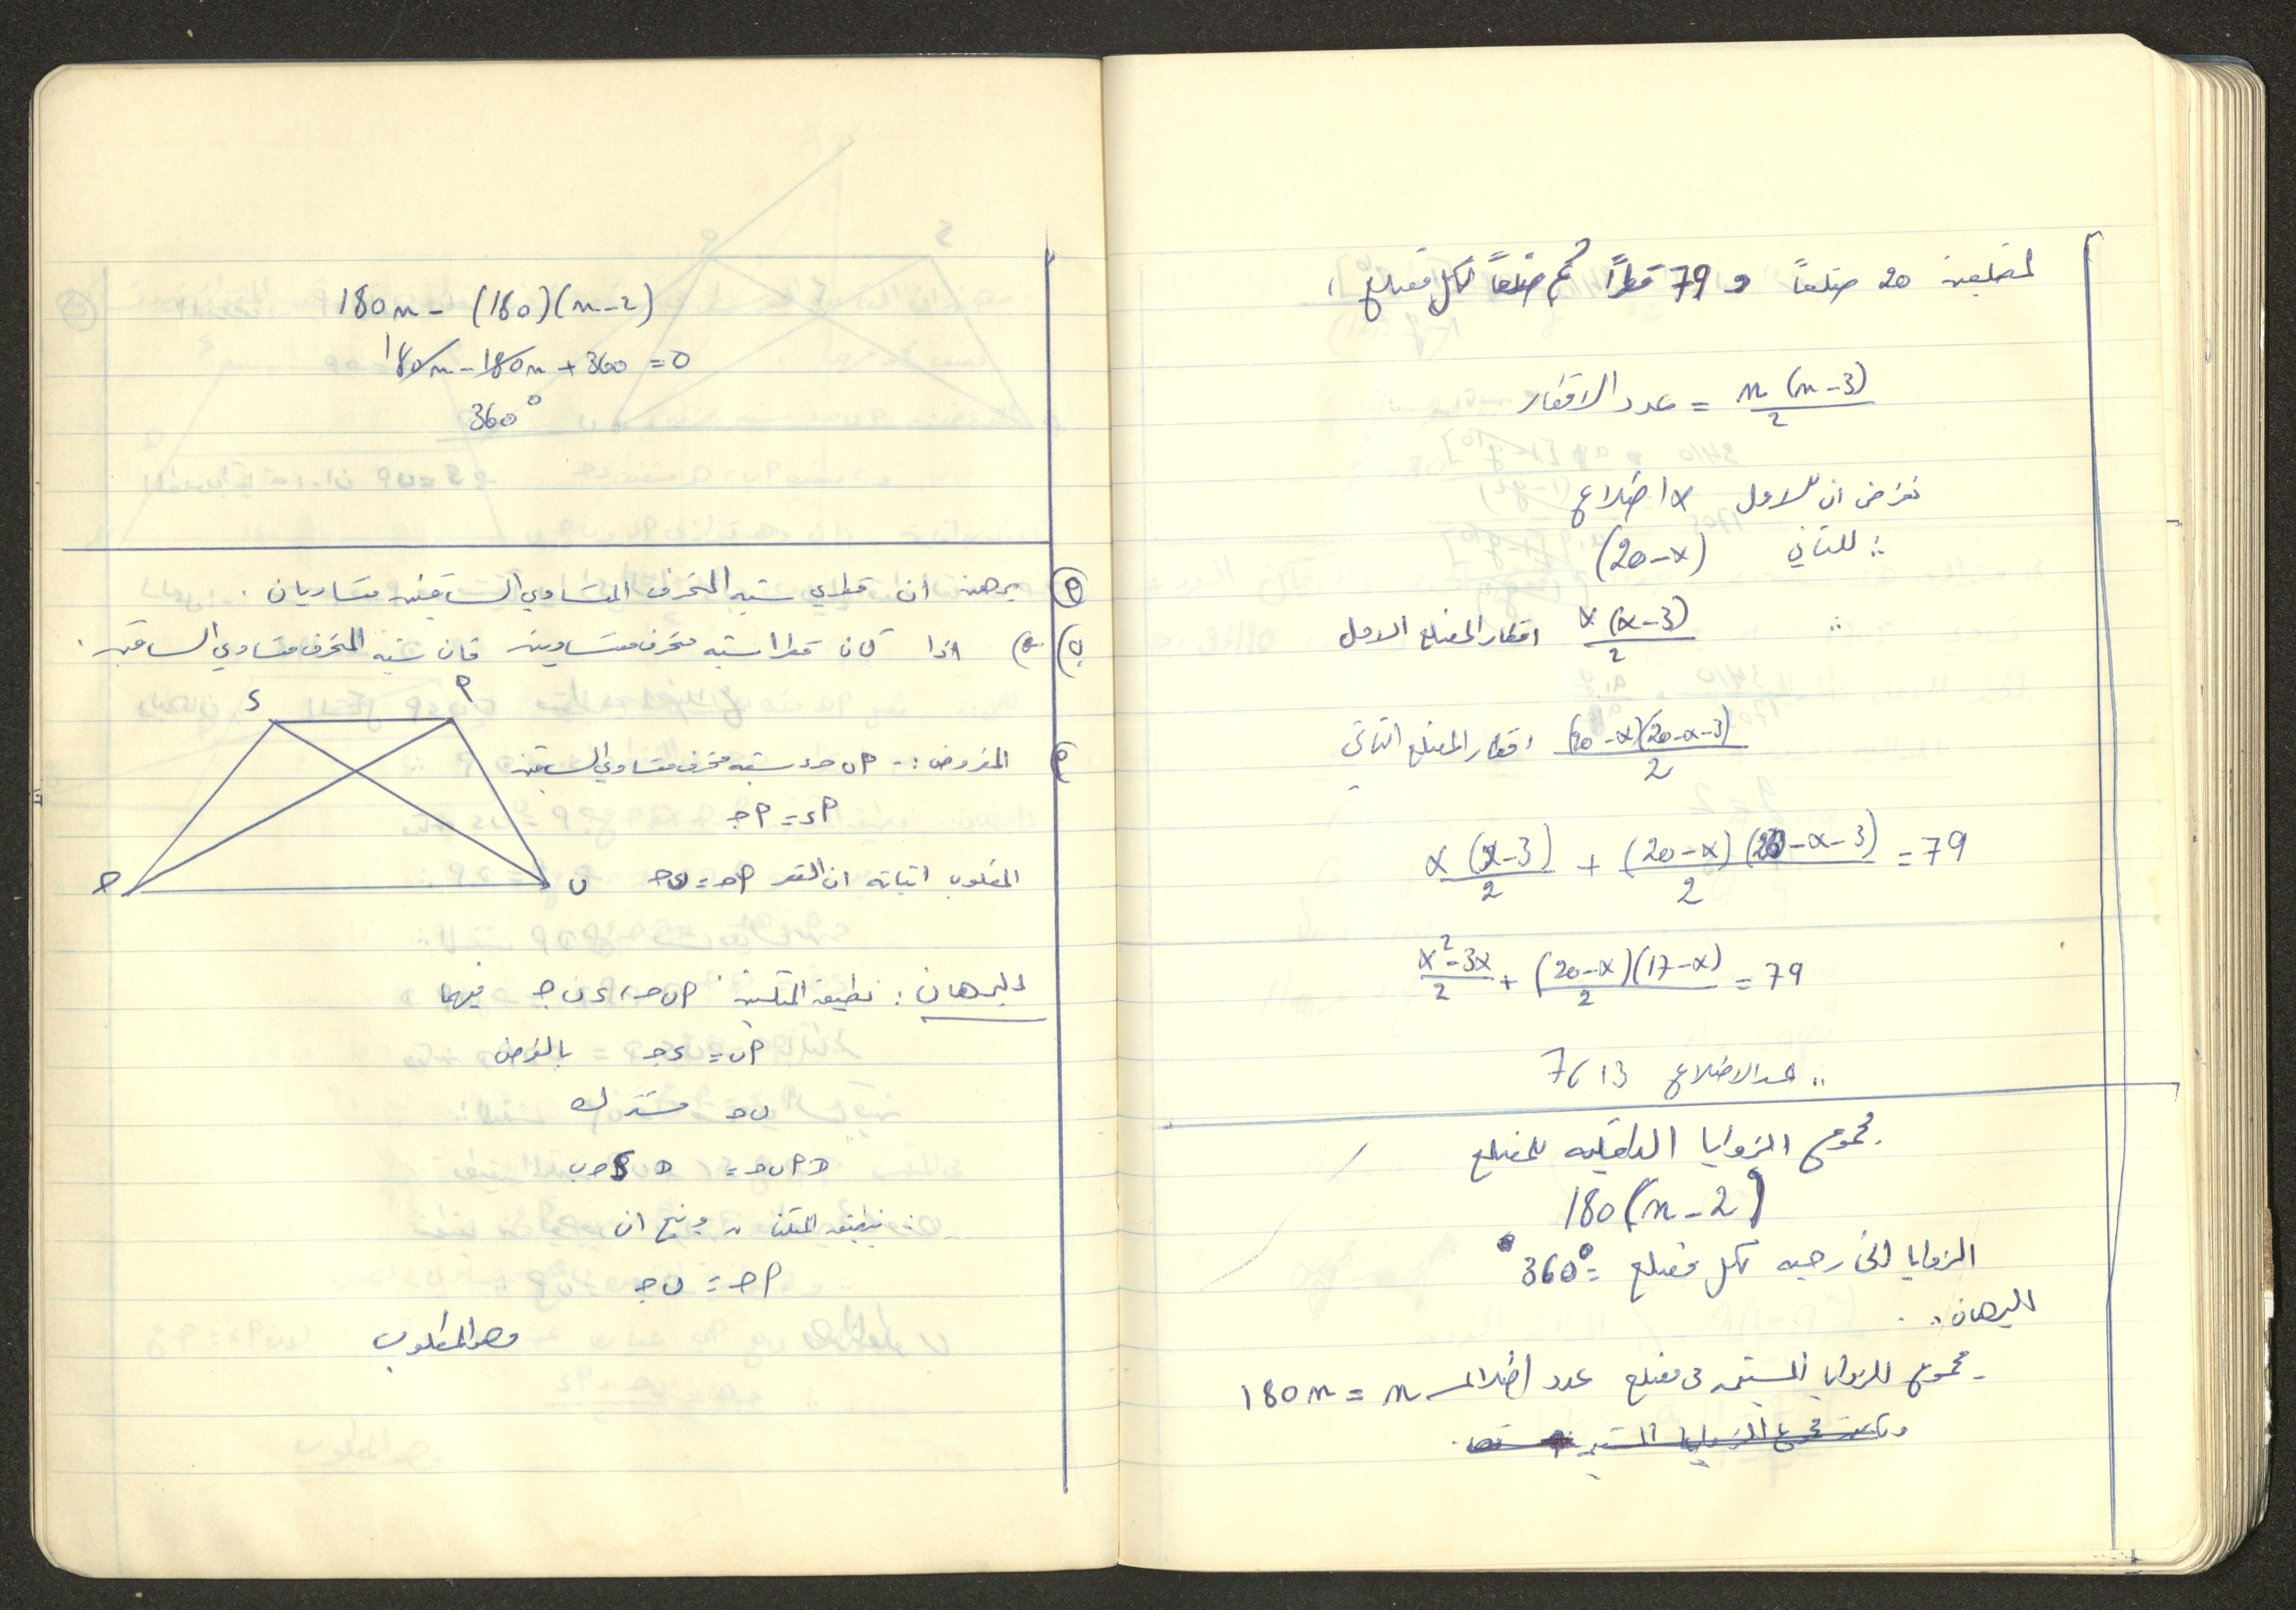 لمضلعين 20 ضلعاً و 79 قطراً كم ضلعاً لكل مضلع ؟
n (n-3) / 2 = عدد الاقطار
نفرض ان للاول x اضلاع
∴ للثاني (20-x)
∴ x (x-3) / 2 اقطار المضلع الاول
(20-x)(20-x-3) / 2 اقطار المضلع الثاني
x (x-3) / 2 + (20-x) (20-x-3) / 2 = 79
x² - 3x / 2 + (20-x)(17-x) / 2 = 79
∴ عدد الاضلاع 13 ، 7
مجموع الزوايا الداخليه للمضلع
180 (n-2)
الزوايا الخارجيه لكل مضلع = 360°
البرهان :
مجموع الزوايا المستقيمه في مضلع عدد اضلاعه n = 180n
180n - (180)(n-2)
180n - 180n + 360 = 0
360°
P) برهن ان قطري شبه المنحرف المتساوي الساقين متساويان .
ب) اذا كان قطرا شبه منحرف متساويين فان شبه المنحرف متساوي الساقين .
د P
ح ب
P) المفروض :- P ب ح د شبه منحرف متساوي الساقين
P د = P ح
المطلوب اثباته ان القطر P ح = ب د
البرهان : نطبق المثلثين P ب ح ، د ب ح فيهما
P ب = د ح بالفرض
ب ح مشترك
P ب ح = د ح ب
∴ ينطبق المثلثان وينتج ان
P ح = ب د
وهو المطلوب